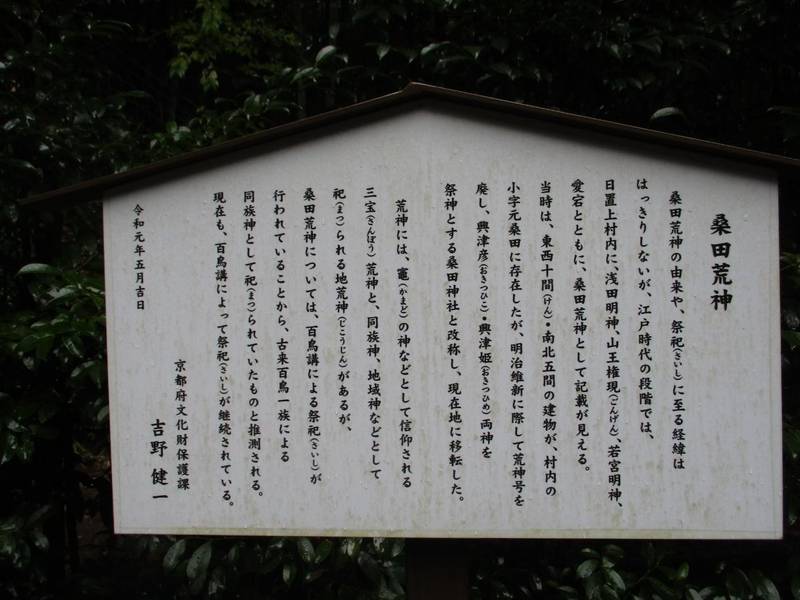 桑田荒神
桑田荒神の由来や、祭祀(さいし)に至る経緯は
はっきりしないが、江戸時代の段階では、
日置上村内に、浅田明神、山王権現(ごんげん)、若宮明神、
愛宕とともに、桑田荒神として記載が見える。
当時は、東西十間(けん)・南北五間の建物が、村内の
小字元桑田に存在したが、明治維新に際して荒神号を
廃し、興津彦(おきつひこ)・興津姫(おきつひめ)両神を
祭神とする桑田神社と改称し、現在地に移転した。
荒神には、竈(かまど)の神などとして信仰される
三宝(さんぽう)荒神と、同族神、地域神などとして
祀(まつ)られる地荒神(じこうじん)があるが、
桑田荒神については、百鳥講による祭祀(さいし)が
行われていることから、古来百鳥一族による
同族神として祀(まつ)られていたものと推測される。
現在も、百鳥講によって祭祀(さいし)が継続されている。
令和元年五月吉日
京都府文化財保護課
吉野 健一